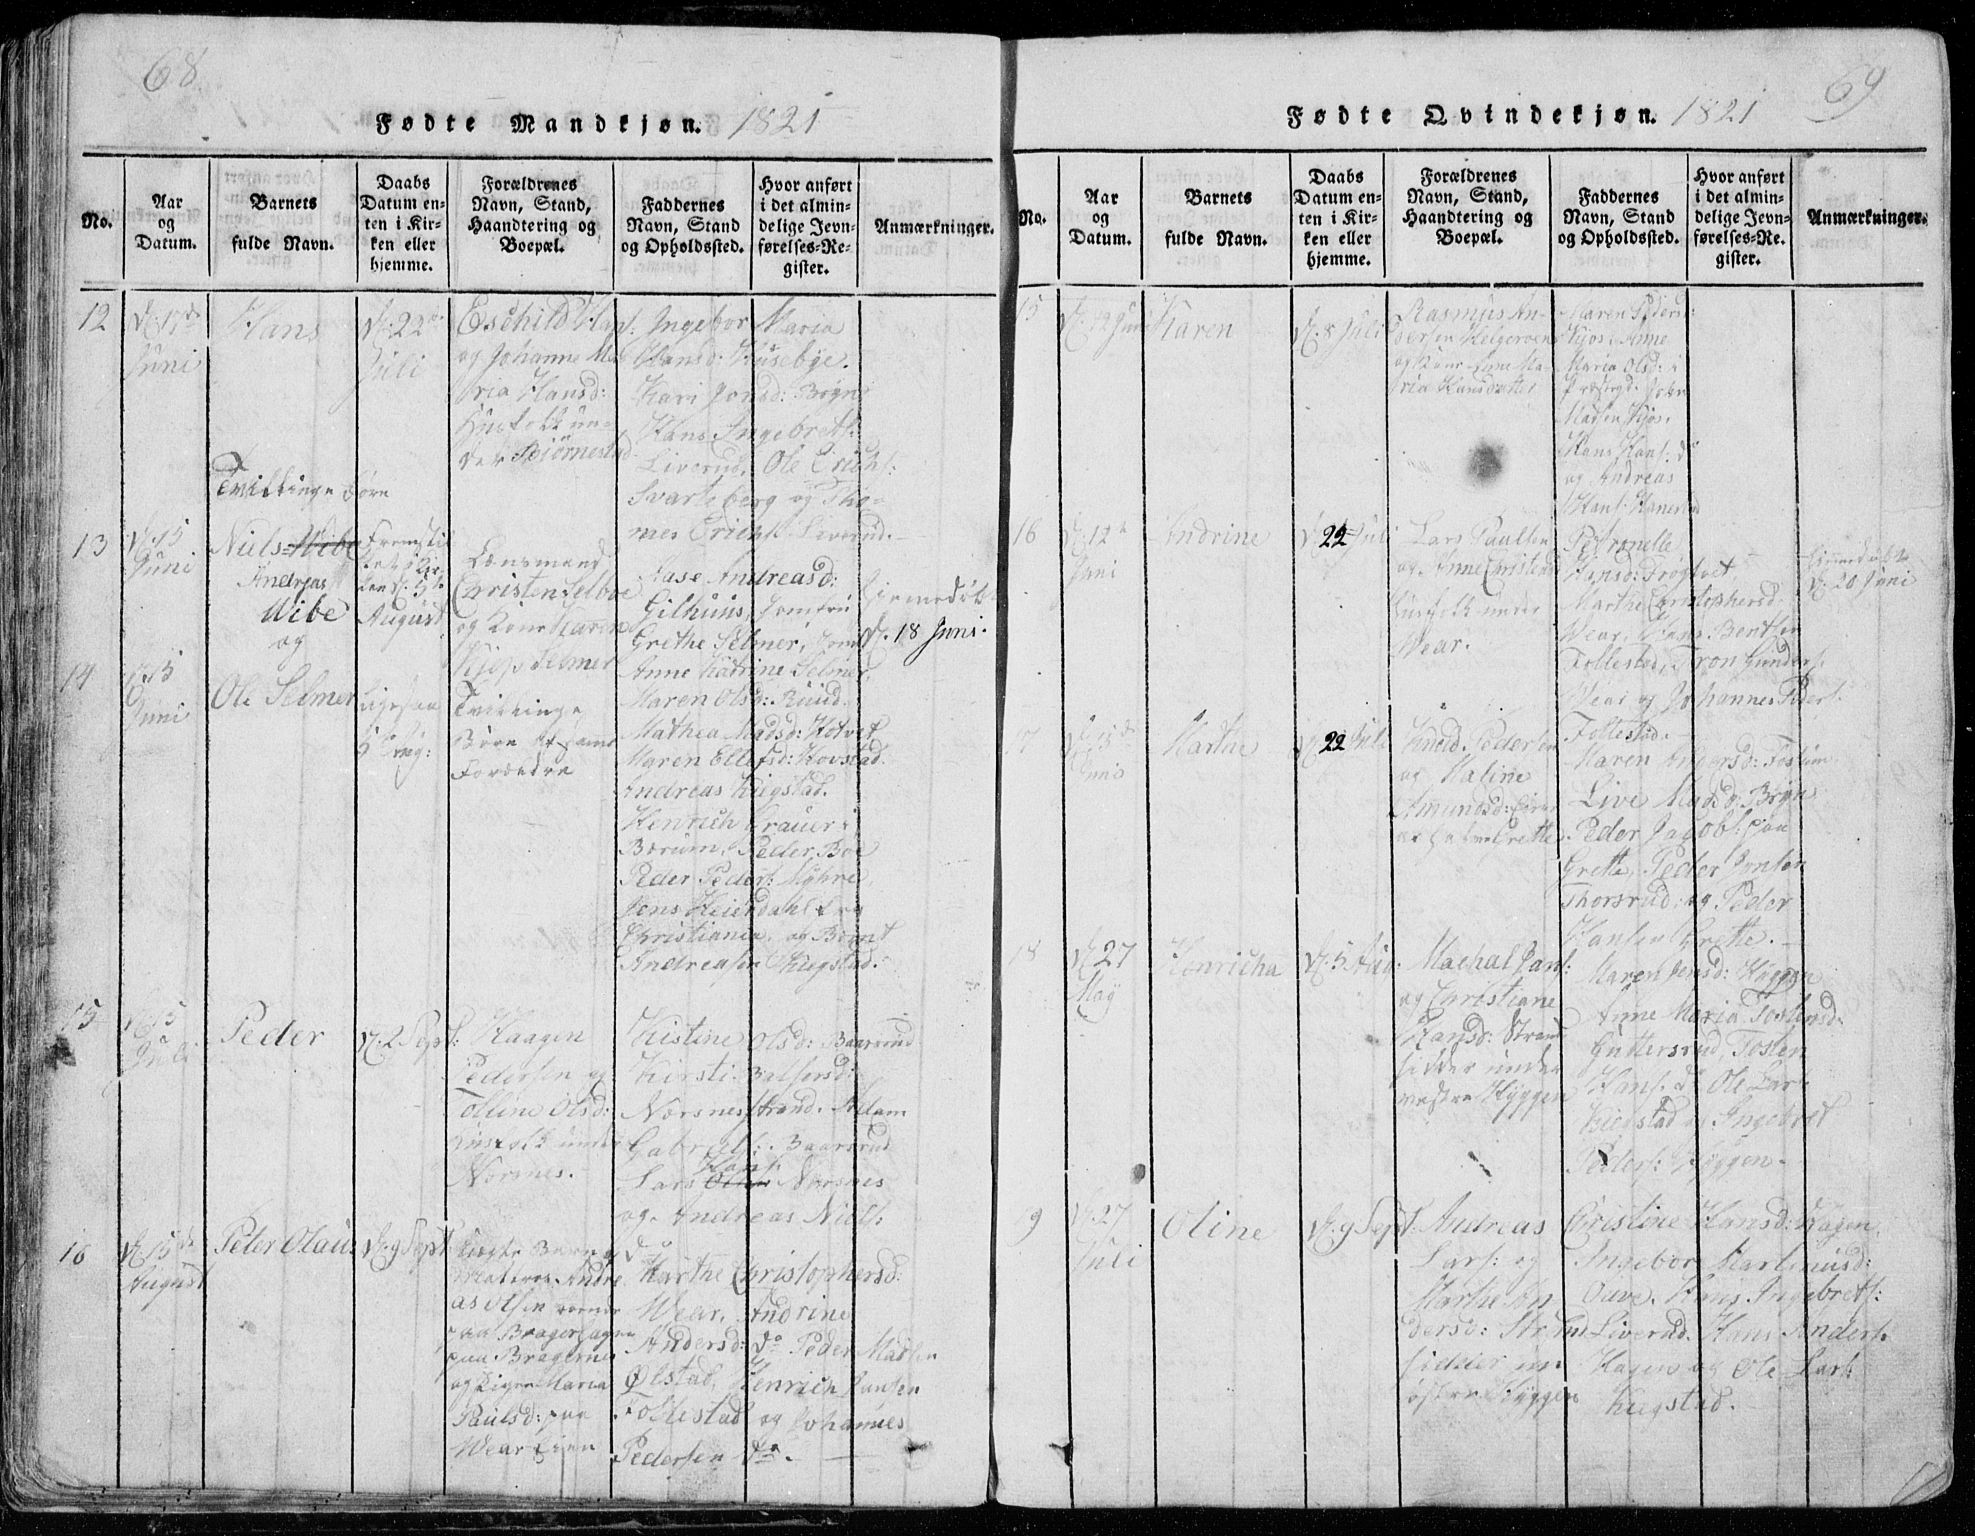 68
Fødte Mandkjøn. 1821
No.
Aar
og
Datum.
Barnets
fulde Navn.
Daabs
Datum en-
ten i Kir-
ken eller
hjemme.
Forældrenes
Navn, Stand,
Haandtering og
Boepæl.
Faddernes
Navn, Stand
og Opholdssted.
Hvor anført
i det almin-
delige Jevn-
førelses-Re-
gister.
Anmærkninger.
12
Juni
Hans
22
Juli
Eschild Hans:
og Johanne Ma
ria Hansd:
Husfolk un-
der Biørnestad
Ingebor Maria
Hansd: Husebye.
Kari Jonsd: Bøgn
Hans Ingebrets:
Liverud, Ole Erichs:
Svarteberg og Tho-
mes Erichs: Liverud.
Tvillinge Børn
13
15
Juni
Niels Wibe
Andreas
Wibe
og
August
Lensmand
Christen Selboe
og Kone Karen
Kjøp Selmer
Aase Andreasd:
Gilhuus, Jomfru
Grethe Selmer, Jomf
Anne Katrine Selmer,
Maren Olsd: Ruud.
Mathea Madsd: Kotvet
Maren Ellefsd: Hovstad.
Andreas Kiegstad.
Henrich Grauer i
Bærum, Peder Boe
Peder Peders: Myhre,
Jens Heierdahl fra
Christiania, og Bernt
Andreasen Kiegstad.
Hjemmedøbt
d. 18 Juni.
14
15
Juni
Ole Selmer
ligesaa
5 Aug:
Tvillinge
Børn af samme
Forældre
15
15
Juli
Peder
d. 2 Sept:
Haagen
Pedersen og
Tolline Olsd:
Husfolk under
Norsnes.
Kistine Olsd: Baarsrud
Kirsti Balsersd:
Norsnesstrand. Adam
Gabriels: Baarsrud
Hans:
Lars Olsen Norsnes
og Andreas Niels:
do
16
15de
August
Peter Olaus
d. 9 Sept
Andre
as Olsen
paa Bragerhagen
paa Bragernes
og Pigen Maria
Paulsd: paa
Wear Eien
Marthe Christophersd:
Wear, Andrine
Andersd: do Peder Madsen
Ølstad, Henrich Jansen
Follestad og Johannes
Pedersen do.
69
Fødte Qvindekjøn. 1821
No.
Aar
og
Datum.
Barnets
fulde Navn.
Daabs
Datum en-
ten i Kir-
ken eller
hjemme.
Forældrenes
Navn, Stand,
Haandtering og
Boepæl.
Faddernes
Navn, Stand
og Opholdssted.
Hvor anført
i det almin-
delige Jevn-
førelses-Re-
gister.
Anmærkninger.
15
d. 12 Juni
Karen
d. 8 Juli
Rasmus An-
dersen Helgeroen
og Kone Anne Ma-
ria Hansdatter
Maren Pedersd:
Kjos, Anne
Maria Olsd: i
Præstegd: John
Madsen Kjos,
Hans Hans: do
og Andreas
Hans: Hanerud
16
d. 12
Juni
Andrine
d. 22 Juli
Lars Paulsen
og Anne Christensd
Husfolk under
Wear.
Petronelle
Hansd: Frogtvet,
Marthe Christophersd:
Wear, Hans Bentsen
Follestad, Tron Gunders:
Wear og Johannes Peders:
Follestad.
Hjemmedøbt
d. 20 Juni
17
Juni
Marthe
d. 22 Juli
Knud Pedersen
og Maline
Amundsd:
Grette.
Maren Andersd: Tostum
Live Madsd: Bøgn
Peder Jacobs: paa
Grette, Peder Jonsen
Thorsrud og Peder
Hansen Grette.
18
d. 27
May
Henricha
d. 5 Aug:
Machal Jans:
og Christiane
Hansd: Strand
sidder under
vestre Hyggen
Maren Jensd: Hyggen
Anne Maria Tostensd:
Guttersrud, Tosten
Hans: do Ole Lars
Kiegstad og Ingebret
Peders: Hyggen.
19
d. 27
Juli
Oline
d. 9 Sept:
Andreas
Lars: og
Marthe An
dersd: Strand
sidder un
østre Hyggen
Christine Hansd: Hagen,
Ingebor Martinusd:
Ouve. Hans Ingebrets:
Liverud. Hans Anders:
Hagen og Ole Lars:
Kiegstad.